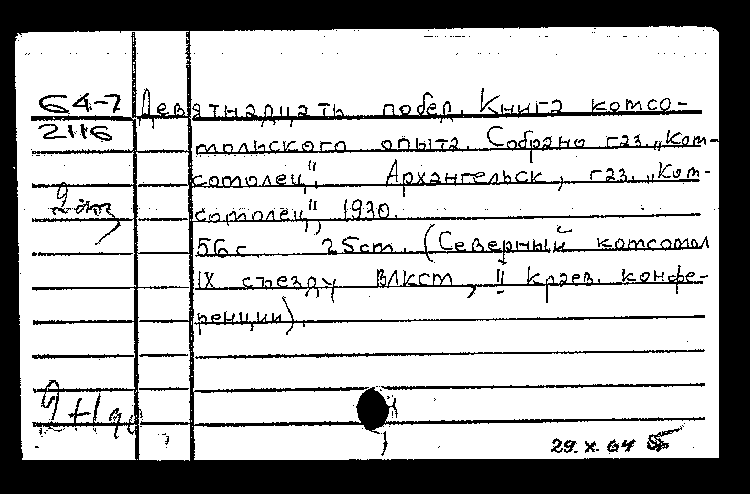 64-7 Девятнадцать побед. Книга комсо-
2116 мольского опыта. Собрано газ. „Ком-
сомолец". Архангельск, газ. „Ком-
2 экз сомолец", 1930.
56 с 25 см. (Северный комсомол
IX съезду ВЛКСМ, II краев. конфе-
ренции).
29.X.64